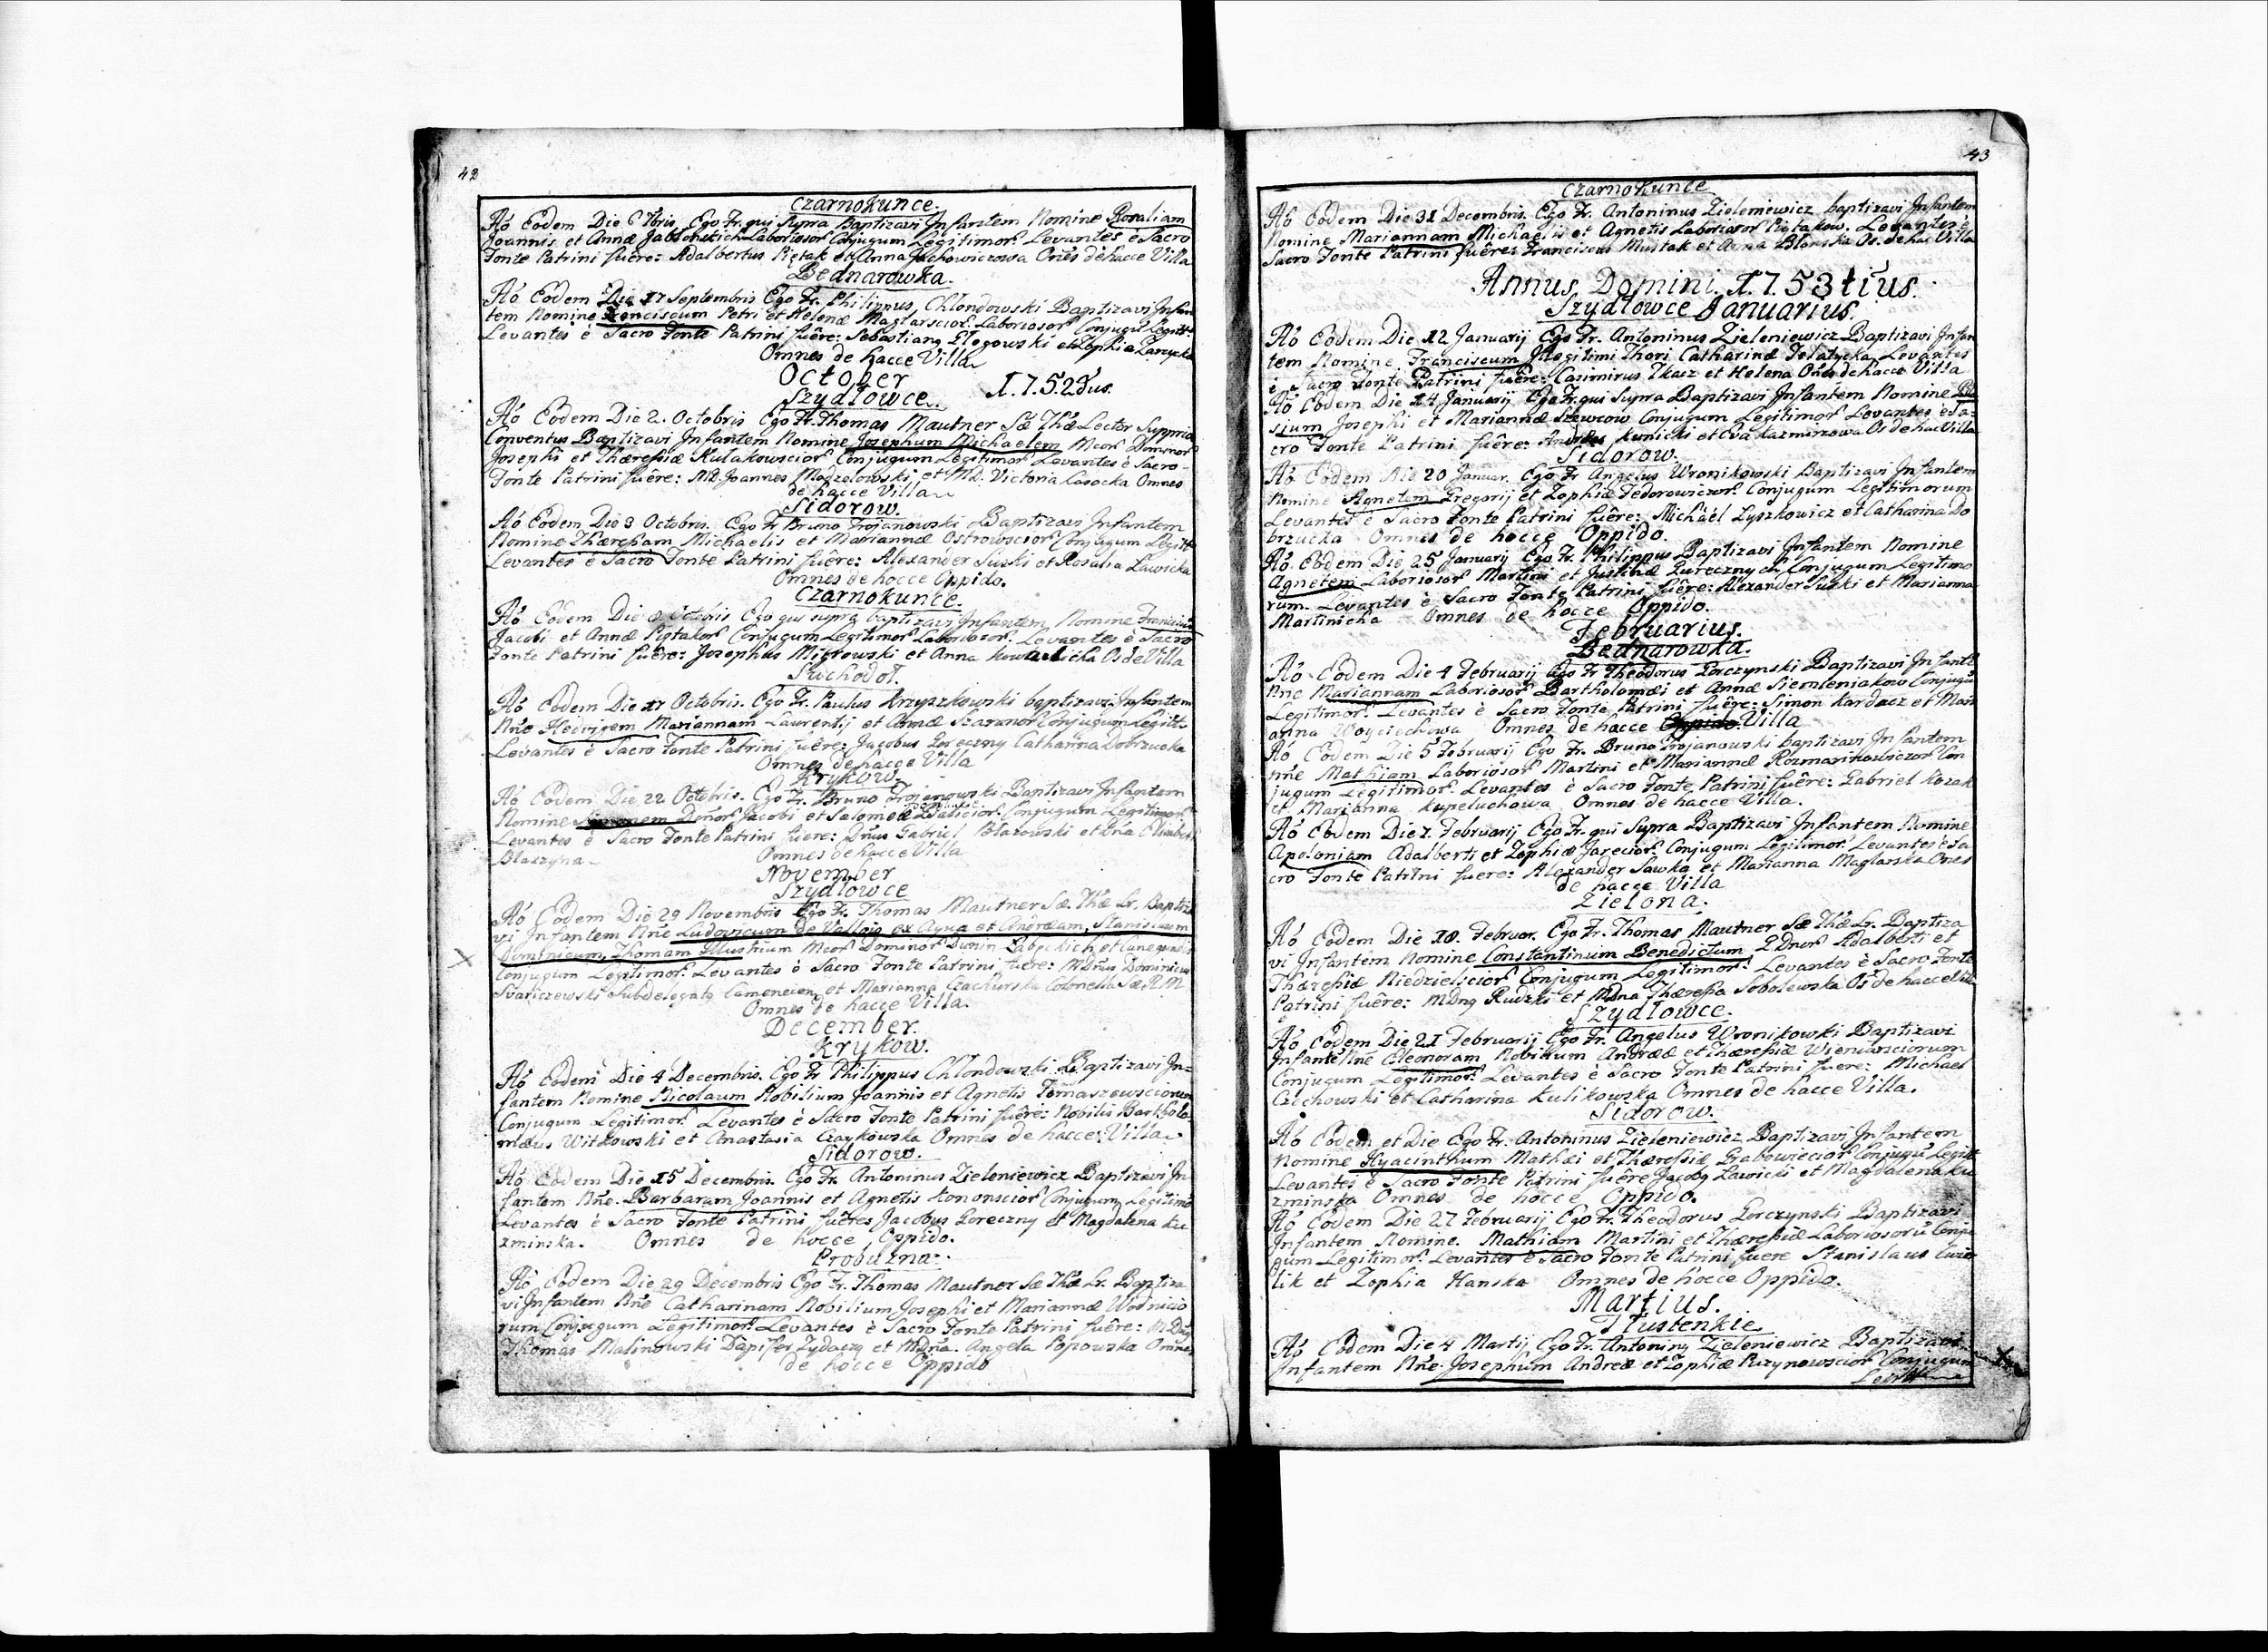 42
Czarnokunce.
Aô Eodem Die 7bris Ego Fr. qui Supra Baptizavi Infantem Nomine Rosaliam
Joannis et Annæ Jabłonskich Laboriosor Conjugum Legitimor Levantes è Sacro
Fonte Patrini fuêre: Adalbertus Piętak et Anna Jachowiczowa Onês de hacce Villa
Bednarowka.
Aô Eodem Die 17 Septembris Ego Fr. Philippus Chlondowski Baptizavi Infan
tem Nomine Franciscum Petri et Helenæ Maglarscior Laboriosor Conjugu Legitt
Levantes è Sacro Fonte Patrini fuêre: Sebastianq Glogowski et Zophia
Omnes de hacce Villa
October 1.7.5.2dus.
Szydlowce.
Aô Eodem Die 2. Octobris Ego Fr. Thomas Mautner Sæ Thæ Lector
Conventus Baptizavi Infantem Nomine Josephum Michaelem Mcor Dominor
Josephi et Thæresiæ Kułakowscior Conjugum Legitimor Levantes è Sacro
Fonte Patrini fuêre: MD. Joannes et MD. Victoria Lasocka Omnes
de hacce Villa
Sidorow.
Aô Eodem Die 3 Octobris. Ego Fr Bruno Trojanowski Baptizavi Infantem
Nomine Thæresiam Michaelis et Mariannæ Ostrowscior Conjugum Legitt
Levantes è Sacro Fonte Patrini fuêre: Alexander Suski et Rosalia Lawicka
Omnes de hocce Oppido.
Czarnokunce.
Aô Eodem Die 8 Octobris Ego qui supra baptizavi Infantem Nomine
Jacobi et Annæ Piętakor Conjugum Legitimor Laboriosor. Levantes è Sacro
Fonte Patrini fuêre: Josephus Migrowski et Anna Os de Villa
Suchodoł.
Aô Eodem Die 17 Octobris. Ego Fr. Paulus Krzyszkowski baptizavi Infantem
Nñe Hedvigem Mariannam Laurentij et Annæ Conjugum Legitt.
Levantes è Sacro Fonte Patrini fuêre: Jacobus Goreczny Catharina Dobrzucka
Omnes de hacce Villa
Krykow.
Aô Eodem Die 22 Octobris. Ego Fr. Bruno Trojanowski Baptizavi Infantem
Nomine Simonem Dõnor Jacobi et Salomeæ Conjugum Legitimor
Levantes è Sacro Fonte Patrini fuere: Dnus Gabriel Błazowski et Dna
Blaszyna
Omnes de hacce Villa
November
Szydlowce
Aô Eodem Die 29 Novembris Ego Fr. Thomas Mautner Sæ. Thæ Lr. Baptiza
vi Infantem Nñe Ludovicum de Vallois ex Aqua et Andræam, Stanislaum
Dominicum, Thomam Illustrium Mcor Dominor Dunin Labęckich et
Conjugum Legitimor. Levantes è Sacro Fonte Patrini fuere: MDnus Dominicus
Svariczewski Subdelegatq Camenecen et Marianna Czachurska Colonella Sæ R. M
Omnes de hacce Villa.
December.
Krykow.
Aô Eodem Die 4 Decembris. Ego Fr Philippus Chlondowski Baptizavi In=
fantem Nomine Nicolaum Nobilium Joannis et Agnetis Tomaszewsciorum
Conjugum Legitimor. Levantes è Sacro Fonte Patrini fuêre: Nobilis Bartholo
mæus Witkowski et Anastasia Czaykowska Omnes de hacce Villa
Sidorow.
Aô Eodem Die 15 Decembris. Ego Fr. Antoninus Zieleniewicz Baptizavi In
fantem Nñe. Barbaram Joannis et Agnetis Kononscior Conjugum Legitimo
Levantes è Sacro Fonte Patrini fuêres Jacobus Goreczny et Magdalena Ku
zminska. Omnes de hocce Oppido.
Probuzna.
Aô Eodem Die 29 Decembris Ego Fr. Thomas Mautner Sæ Thæ Lr. Baptiza
vi Infantem Nñe Catharinam Nobilium Josephi et Mariannæ Wodnicio
rum Conjugum Legitimor. Levantes è Sacro Fonte Patrini fuêre: M Dnq
Thomas Malinowski Dapifer Zydaczq et MDna. Angela Popowska Omnes
de hocce Oppido
43
Czarnokunce
Aô Eodem Die 31 Decembris. Ego Fr. Antoninus Zieleniewicz baptizavi Infantem
Nomine Mariannam Michaelis et Agnetis Laboriosor Piętakow. Levantes è
Sacro Fonte Patrini fuêre: Franciscus Mustak et Anna Blonska Os. de hac Villa
Annus Domini 1.7.53tius.
Szydlowce Januarius.
Aô Eodem Die 12 Januarij Ego Fr. Antoninus Zieleniewicz Baptizavi Infan
tem Nomine Franciscum Illegitimi Thori Catharinæ Levantes
è Sacro Fonte Patrini fuêre: Casimirus Tkacz et Helena Onês de hacce Villa
Aô Eodem Die 14 Januarij Ego Fr. qui Supra Baptizavi Infantem Nomine
sium Josephi et Mariannæ Szewcow Conjugum Legitimor Levantes è Sa-
cro Fonte Patrini fuêre: Andreas Kunicki et Eva Kazmirzowa Os de hac Villa
Sidorow.
Aô Eodem Die 20 Januar. Ego Fr Angelus Wronikowski Baptizavi Infantem
Nomine Agnetem Gregorij et Zophiæ Fedorowiczor. Conjugum Legitimorum
Levantes è Sacro Fonte Patrini fuêre: Michaël Lyszkowicz et Catharina Do
brzucka Omnes de hocce Oppido.
Aô Eodem Die 25 Januarij Ego Fr. Philippus Baptizavi Infantem Nomine
Agnetem Laboriosor Martini et Justinæ Conjugum Legitimo
rum. Levantes è Sacro Fonte Patrini fuêre: Alexander Suski et Marianna
Martinicha Omnes de hocce Oppido.
Februarius.
Bednarowka.
Aô Eodem Die 4 Februarij Ego Fr Theodorus Gorczynski Baptizavi Infante
Nñe Mariannam Laboriosor Bartholomæi et Annæ Siemieniakow Conjugu
Legitimor. Levantes è Sacro Fonte Patrini fuêre: Simon Kardacz et Mari
anna Woyciechowa Omnes de hacce Villa
Aô Eodem Die 5 Februarij Ego Fr. Bruno Trojanowski baptizavi Infantem
nñe Mathiam Laboriosor Martini et Mariannæ Rozmarinowiczor Con
jugum Legitimor. Levantes è Sacro Fonte Patrini fuêre: Gabriel Kozak
et Marianna Kupeluchowa Omnes de hacce Villa.
Aô Eodem Die 7. Februarij Ego Fr. qui Supra Baptizavi Infantem Nomine
Apoloniam Adalberti et Zophiæ Jarecior. Conjugum Legitimor. Levantes è Sa
cro Fonte Patrini fuere: Alexander Sawka et Marianna Maglarska Onês
de hacce Villa
Zielona.
Aô Eodem Die 18. Februar. Ego Fr. Thomas Mautner Sæ Thæ Lr. Baptiza
vi Infantem Nomine Constantinum Benedictum Adalberti et
Thæresiæ Niedzielscior Conjugum Legitimor. Levantes è Sacro Fonte
Patrini fuêre: Mdnq Rudzki et MDna Thæresia Sobolewska Os de hacce Villa
Szydlowce.
Aô Eodem Die 21 Februarij Ego Fr. Angelus Wronikowski Baptizavi
Infante Nñe Eleonoram Nobilium Andrææ et Thæresiæ Wieniarsciorum
Conjugum Legitimor. Levantes è Sacro Fonte Patrini fuere: Michael
Czechowski et Catharina Kulikowska Omnes de hacce Villa.
Sidorow.
Aô Eodem et Die Ego Fr. Antoninus Zieleniewicz Baptizavi Infantem
Nomine Hyacinthum Mathæi et Thæresiæ Grabowiecior Conjugu Legitt
Levantes è Sacro Fonte Patrini fuêre Jacobq Lawicki et Magdalena Ku
zminska Omnes de hocce Oppido.
Aô Eodem Die 27 Februarij Ego Fr. Theodorus Gorczynski Baptizavi
Infantem Nomine. Mathiam Martini et Thæresiæ Laboriosoru Conju
gum Legitimor. Levantes è Sacro Fonte Patrini fuere Stanislaus
lik et Zophia Hanska Omnes de hocce Oppido.
Martius.
Tłustenkie
Aô Eodem Die 4 Martij Ego Fr. Antoninq Zieleniewicz Baptizavi
Infantem Nñe Josephum Andreæ et Zophiæ Conjugum